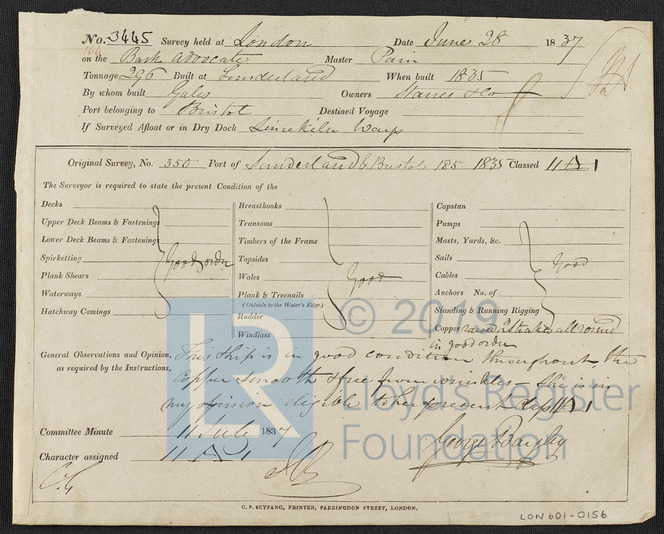 No. 3445 Survey held at London Date June 28 1837
on the Bark Advocate Master Pain
Tonnage 296 Built at Sunderland When built 1835
By whom built Gales Owners & Co
Port belonging to Bristol Destined Voyage
If Surveyed Afloat or in Dry Dock Limekiln
Original Survey, No. 350 Port of Sunderland & Bristol 185 1835 Classed A 1
The Surveyor is required to state the present Condition of the
Decks Breasthooks Capstan
Upper Deck Beams & Fastenings Transoms Pumps
Lower Deck Beams & Fastenings Timbers of the Frame Masts, Yards, &c.
Spirketting Good order Topsides Sails Good
Plank Shears Wales Good Cables
Waterways Plank & Treenails Anchors No. of
(Outside to the Water's Edge)
Hatchway Comings Rudder Standing & Running Rigging
Windlass Copper raised 2 strakes all round
in good order
General Observations and Opinion, This Ship is in good condition throughout, the
as required by the Instructions, Copper smooth & free from wrinkles - She is in
my opinion eligible to be present A 1
Committee Minute 11 July 1837 George Bayley
Character assigned A 1
C. F. SEYFANG, PRINTER, FARRINGDON STREET, LONDON.
LON601-0156
LR
© 2019
Lloyd's Register
Foundation